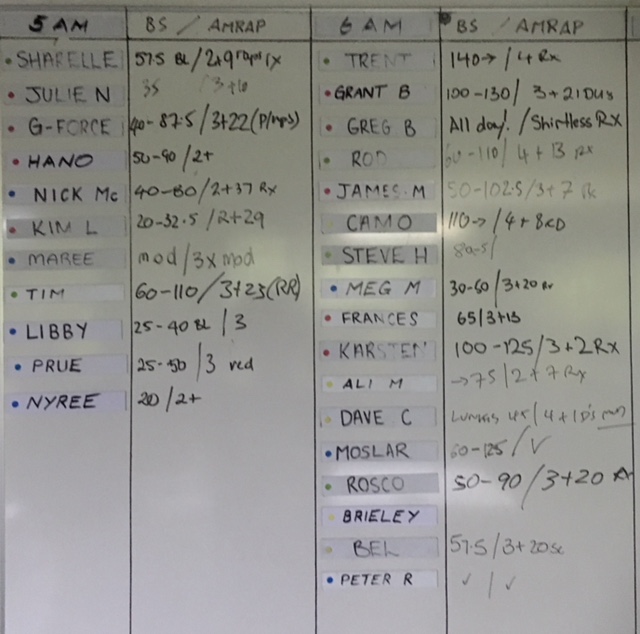 5 AM BS / AMRAP
SHARELLE 57.5 BL / 2+9 reps rx
JULIE N 35 / 3+6
G-FORCE 40-87.5 / 3+22 (P/ups)
HANO 50-90 / 2+
NICK Mc 40-80 / 2+37 Rx
KIM L 20-32.5 / 2+29
MAREE mod / 3x mod
TIM 60-110 / 3+23 (RR)
LIBBY 25-40 BL / 3
PRUE 25-50 / 3 red
NYREE 20 / 2+
6 AM BS / AMRAP
TRENT 140→ / 4 Rx
GRANT B 100-130 / 3+21 DUs
GREG B All day! / Shirtless RX
ROD 60-110 / 4+13 rx
JAMES M 50-102.5 / 3+7 Rx
CAMO 110→ / 4+8
STEVE H
MEG M 30-60 / 3+20 Rr
FRANCES 65 / 3+13
KARSTEN 100-125 / 3+2 RX
ALI M →75 / 2+7 Rx
DAVE C 45 / 4+
MOSLAR 60-125 / √
ROSCO 50-90 / 3+20
BRIELEY
BEL 57.5 / 3+20 sc
PETER R ✓ / ✓